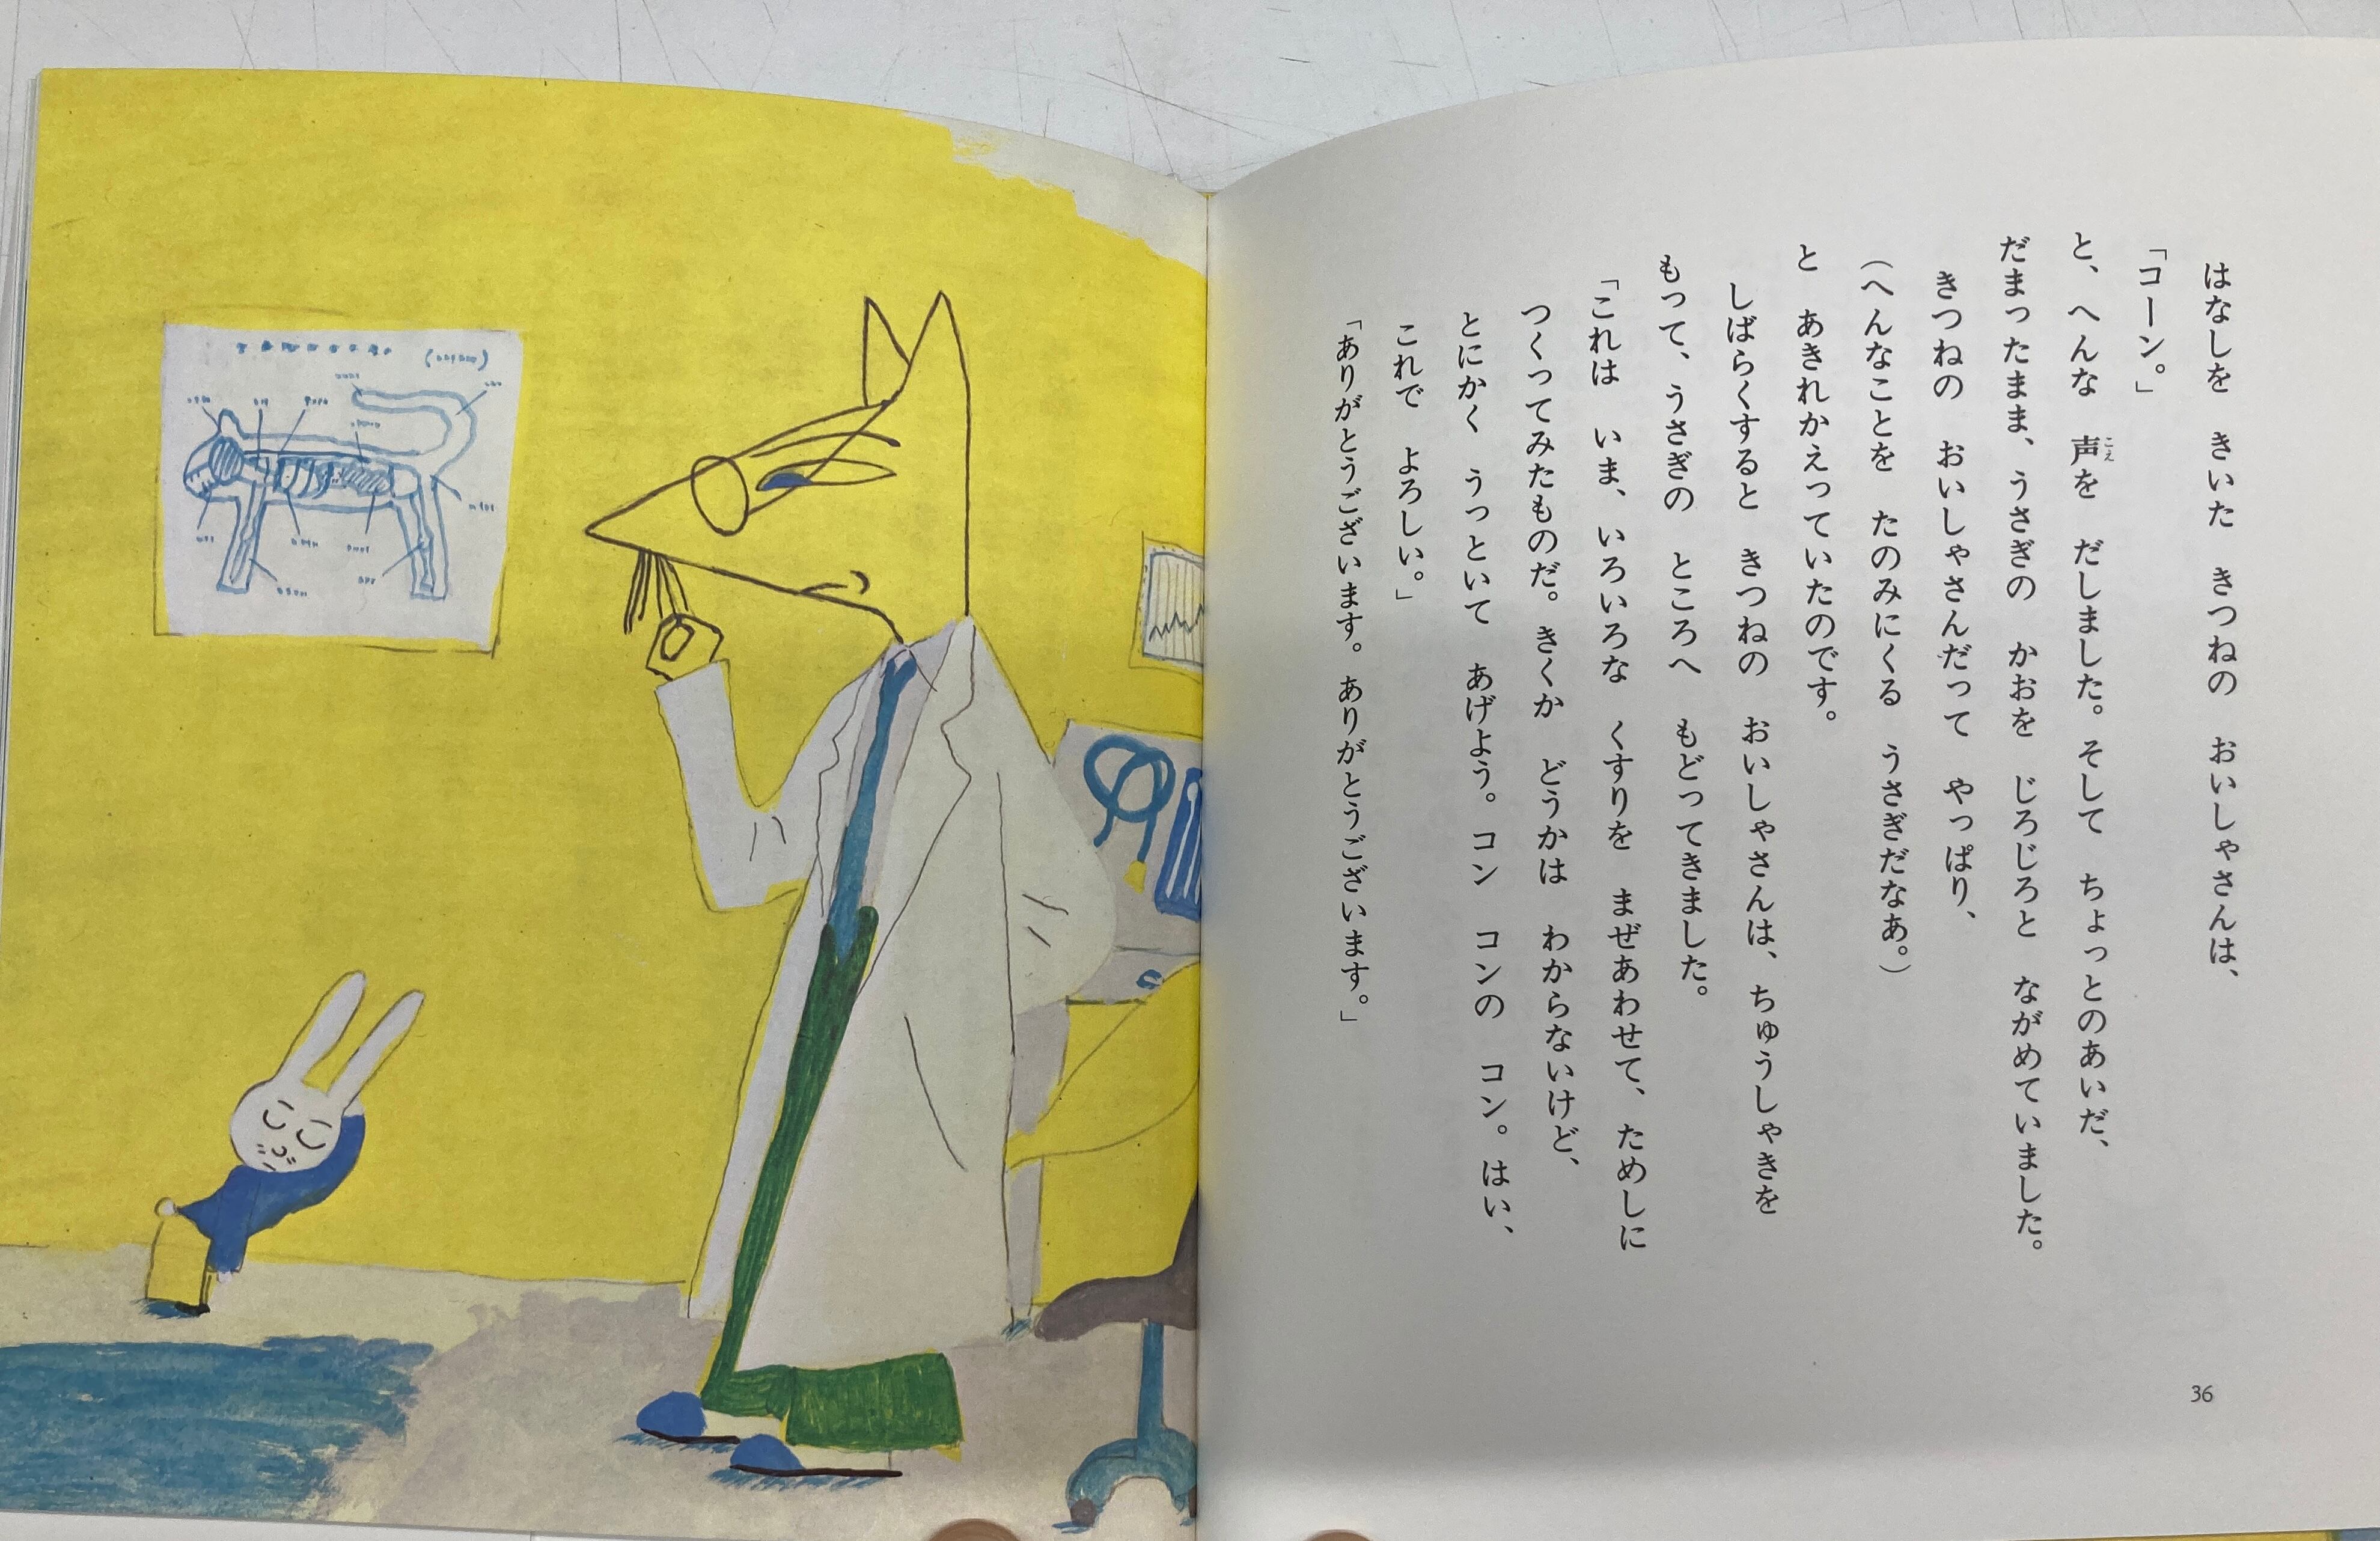 はなしを　きいた　きつねの　おいしゃさんは、
「コーン。」
と、へんな　声を　だしました。そして　ちょっとのあいだ、
だまったまま、うさぎの　かおを　じろじろと　ながめていました。
きつねの　おいしゃさんだって　やっぱり、
（へんなことを　たのみにくる　うさぎだなあ。）
と　あきれかえっていたのです。
しばらくすると　きつねの　おいしゃさんは、ちゅうしゃきを
もって、うさぎの　ところへ　もどってきました。
「これは　いま、いろいろな　くすりを　まぜあわせて、ためしに
つくってみたものだ。きくか　どうかは　わからないけど、
とにかく　うっといて　あげよう。コン　コンの　コン。はい、
これで　よろしい。」
「ありがとうございます。ありがとうございます。」
36